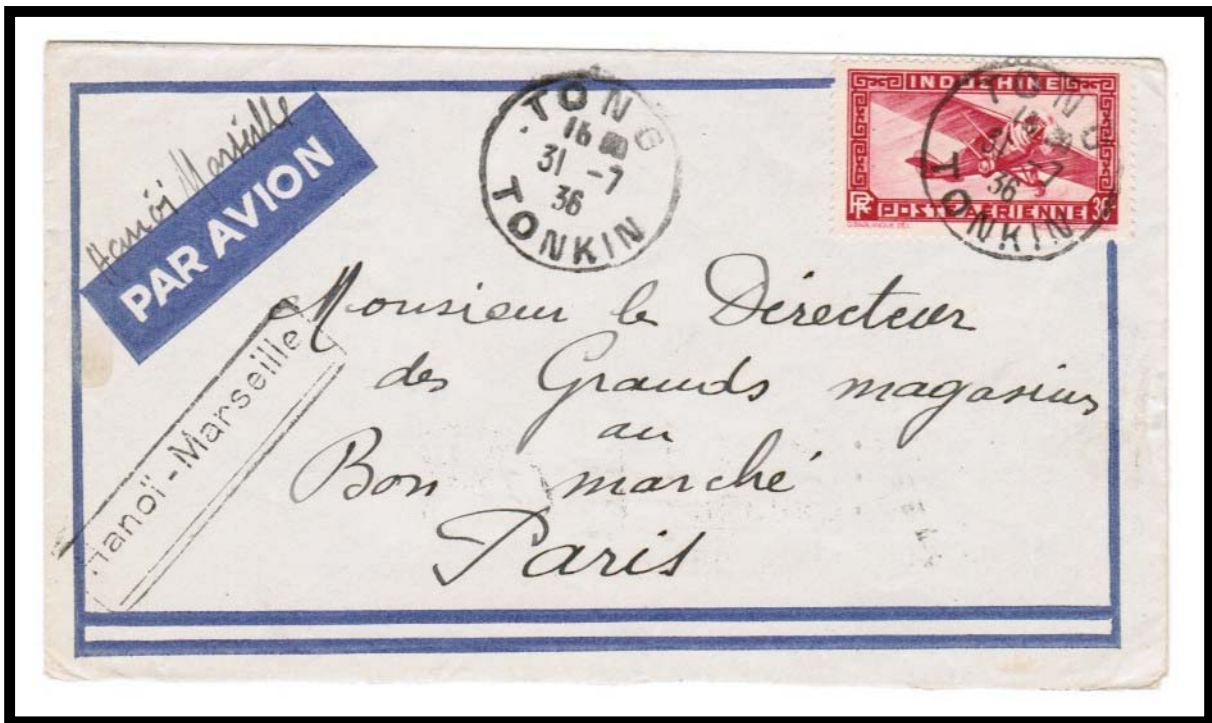 Hanoï Marseille
PAR AVION
Hanoï-Marseille
TONG
16
31 -7
36
TONKIN
INDOCHINE
RF POSTE AERIENNE 36
TONG
16
31 -7
36
TONKIN
Monsieur le Directeur
des Grands magasins
au
Bon marché
Paris